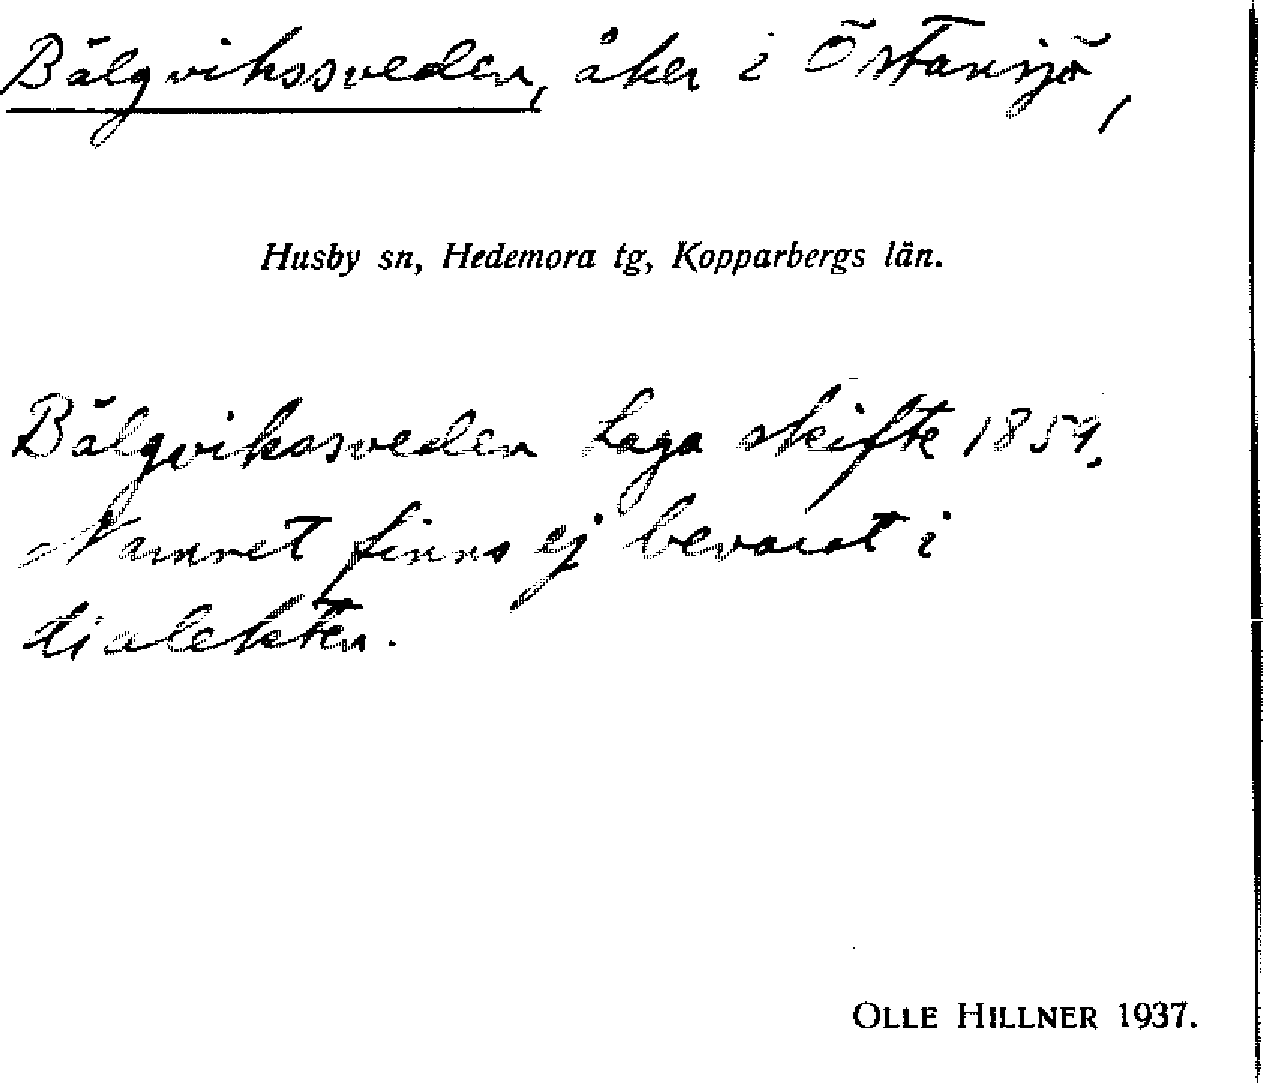 Bälgvikssveden, åker i Östansjö,
Husby sn, Hedemora tg, Kopparbergs län.
Bälgviksveden Laga skifte 1859.
Namnet finns ej bevarat i
dialekten.
OLLE HILLNER 1937.